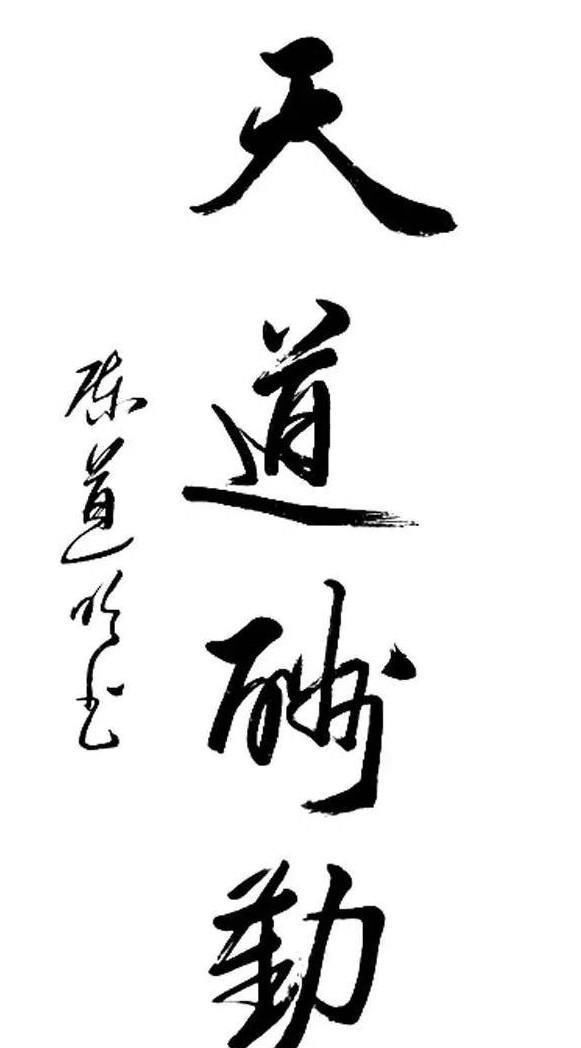 天道酬勤
陈道明书